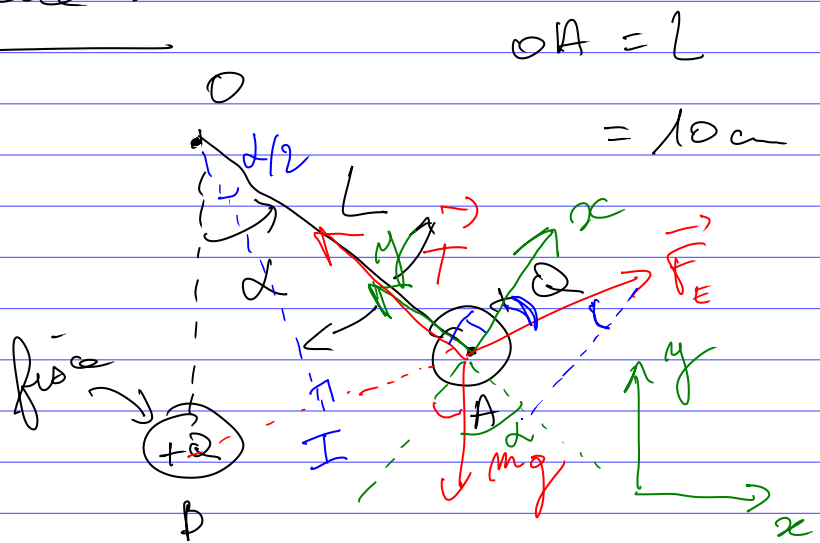 OA = L
= 10 cm
O
α/2
L
T
x
y
Q
F_E
α
fixe
+Q
I
A
α
mg
y
x
P